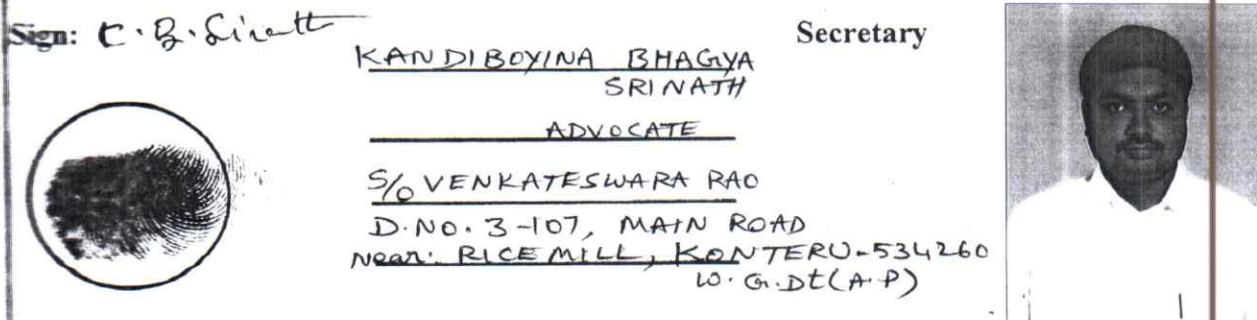 Sign: K. B. Srinath
Secretary
KANDIBOYINA BHAGYA
SRINATH
ADVOCATE
S/o VENKATESWARA RAO
D.NO. 3-107, MAIN ROAD
Near: RICE MILL, KONTERU-534260
W.G.Dt(A.P)